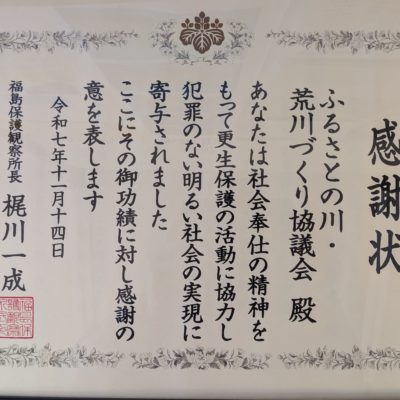 感謝状
ふるさとの川・
荒川づくり協議会 殿
あなたは社会奉仕の精神を
もって更生保護の活動に協力し
犯罪のない明るい社会の実現に
寄与されました
ここにその御功績に対し感謝の
意を表します
令和七年十一月十四日
福島保護観察所長 梶川一成